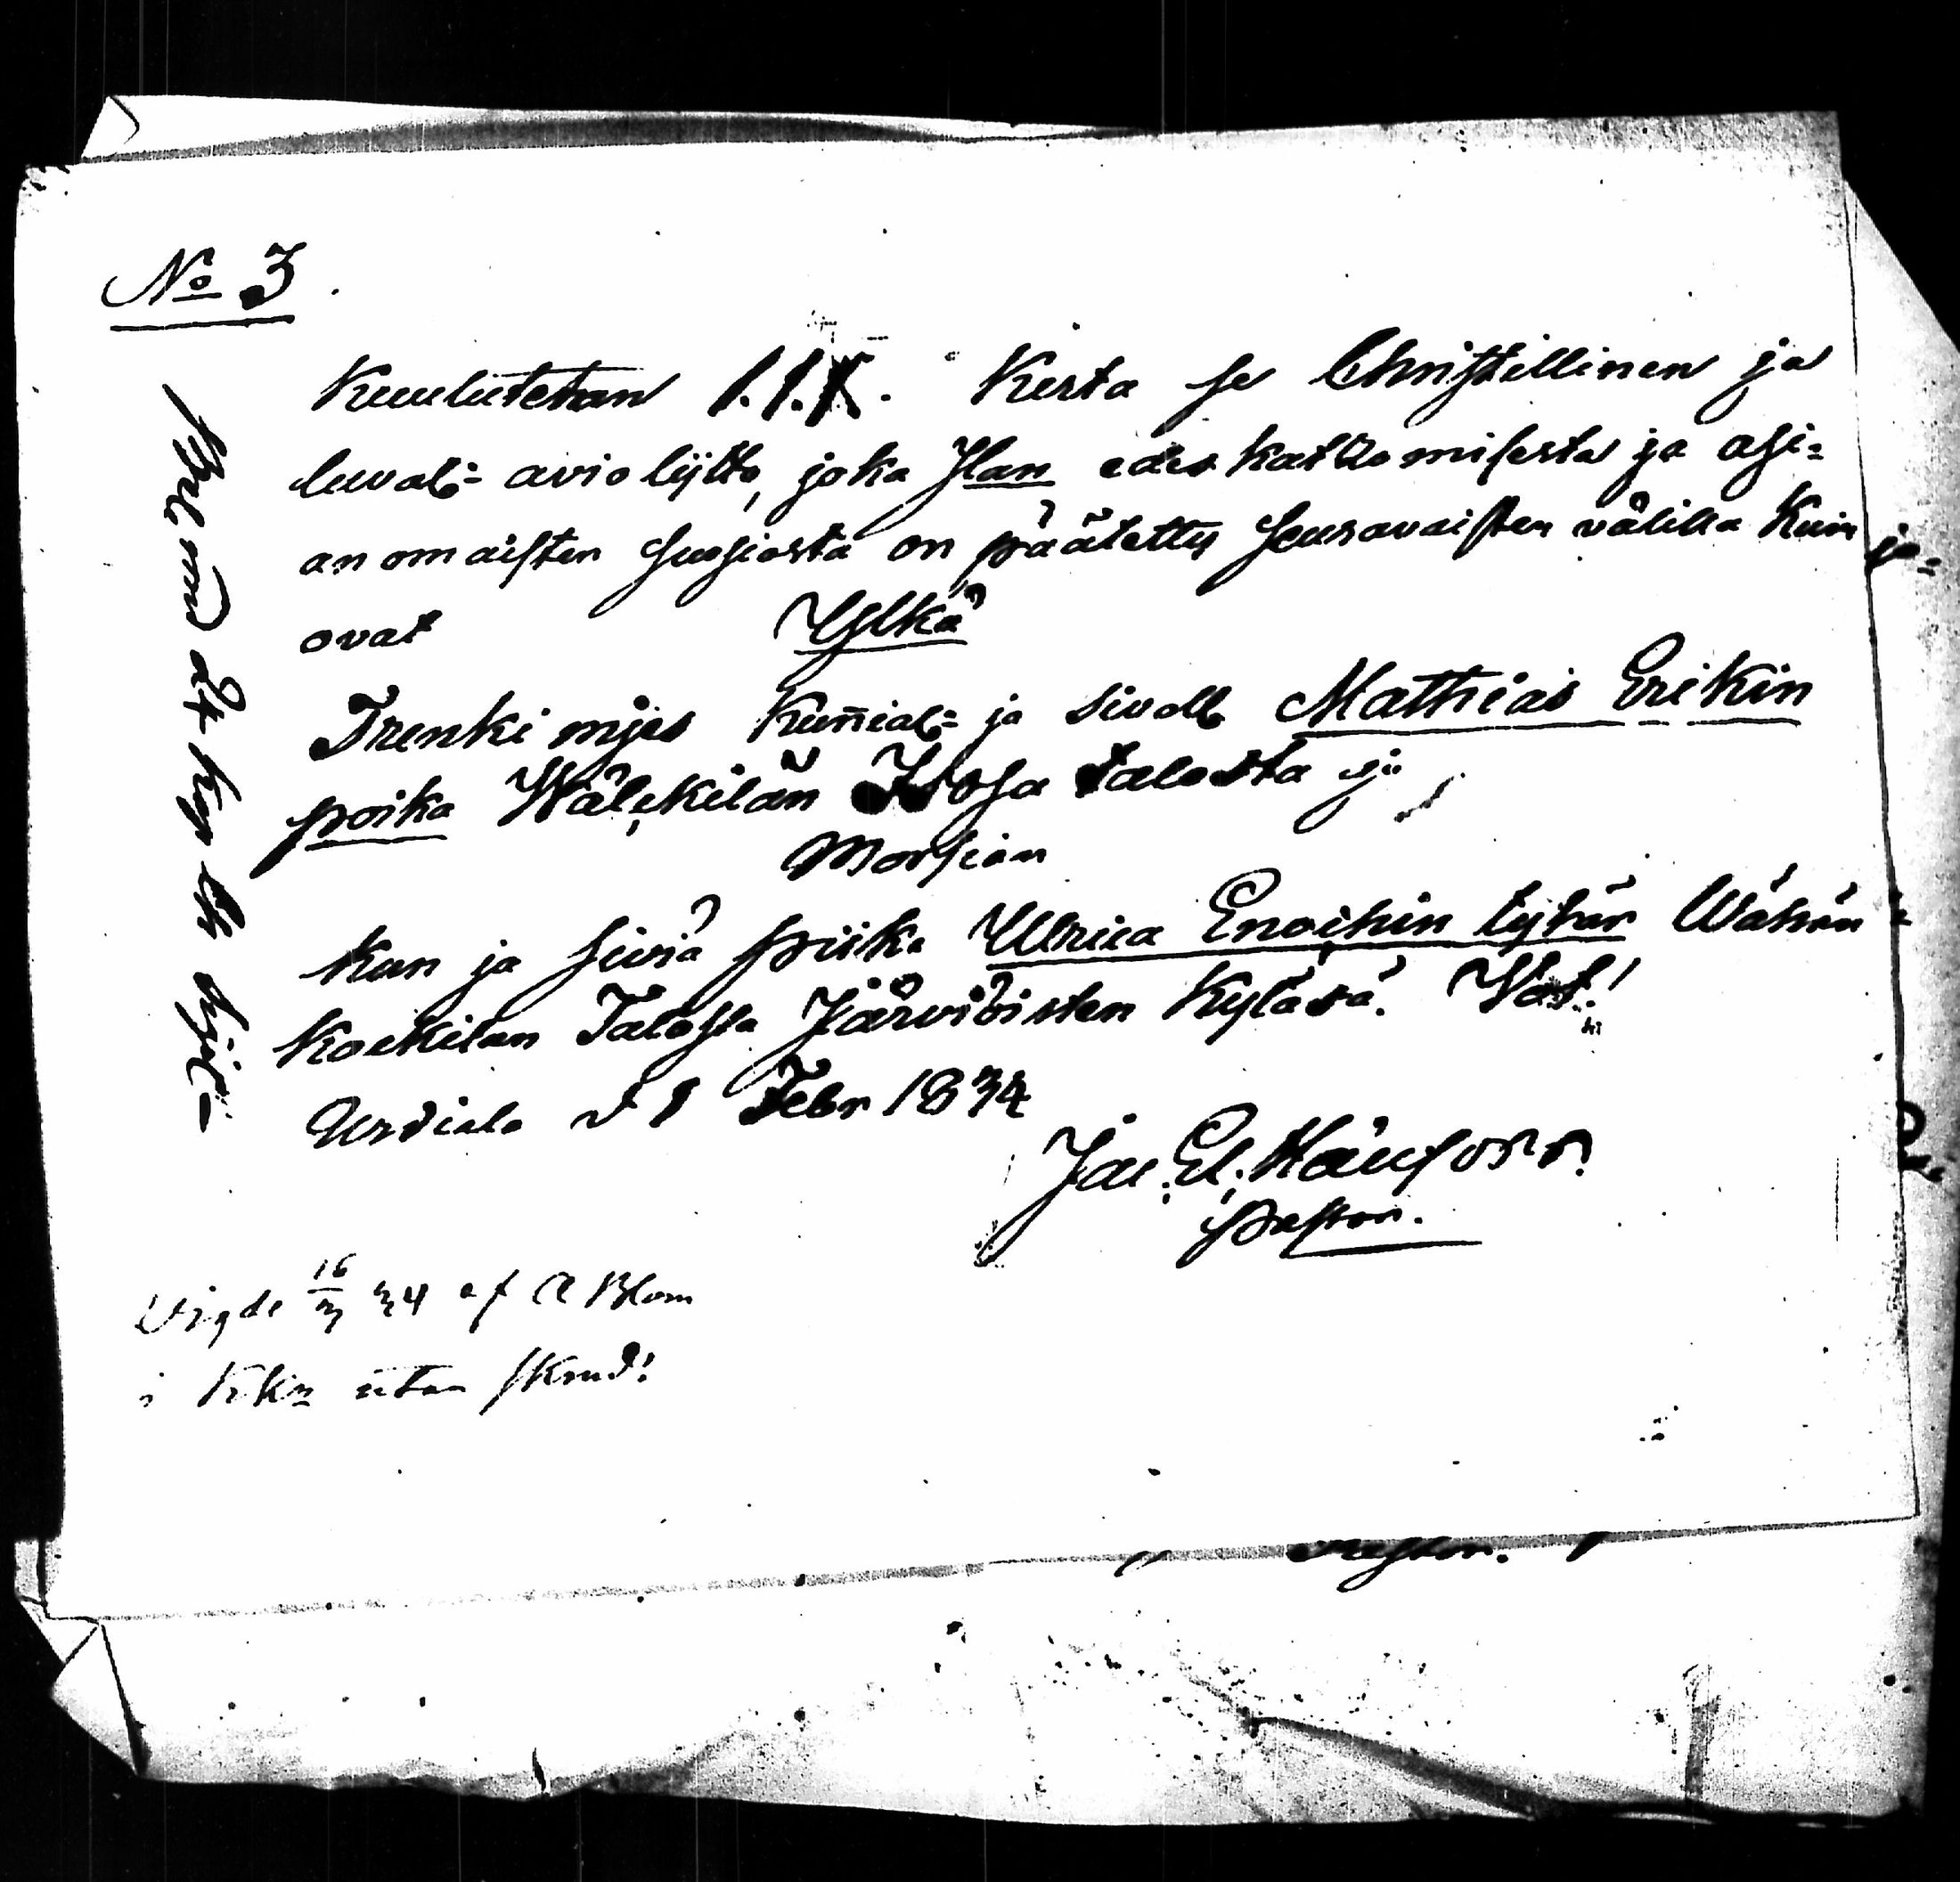 No 3.
Kuulutetan I.I.X. Kerta se Christillinen ja
luval: avioliitto, joka Jlan edeskattomisesta ja asi-
anomaisten suosiosta on päätetty seuraavaisten välillä Kuin
ovat Ylkä
Trenki mjes Kunial: ja sivoll Mathias Erikin
poika Wälckilän Isosa talosta ja
Morsian
Kun ja siviä piika Ulrica Enockin tytär Wähän
Kockilan Talossa Järvöisten Kyläsä. Vot!
Urdiala d 1 Febr 1834
Jac. Ed. Hänforr
Pastor.
Vigde 16/3 34 af A Blom
i Kkn utan skrud!
Pastor.